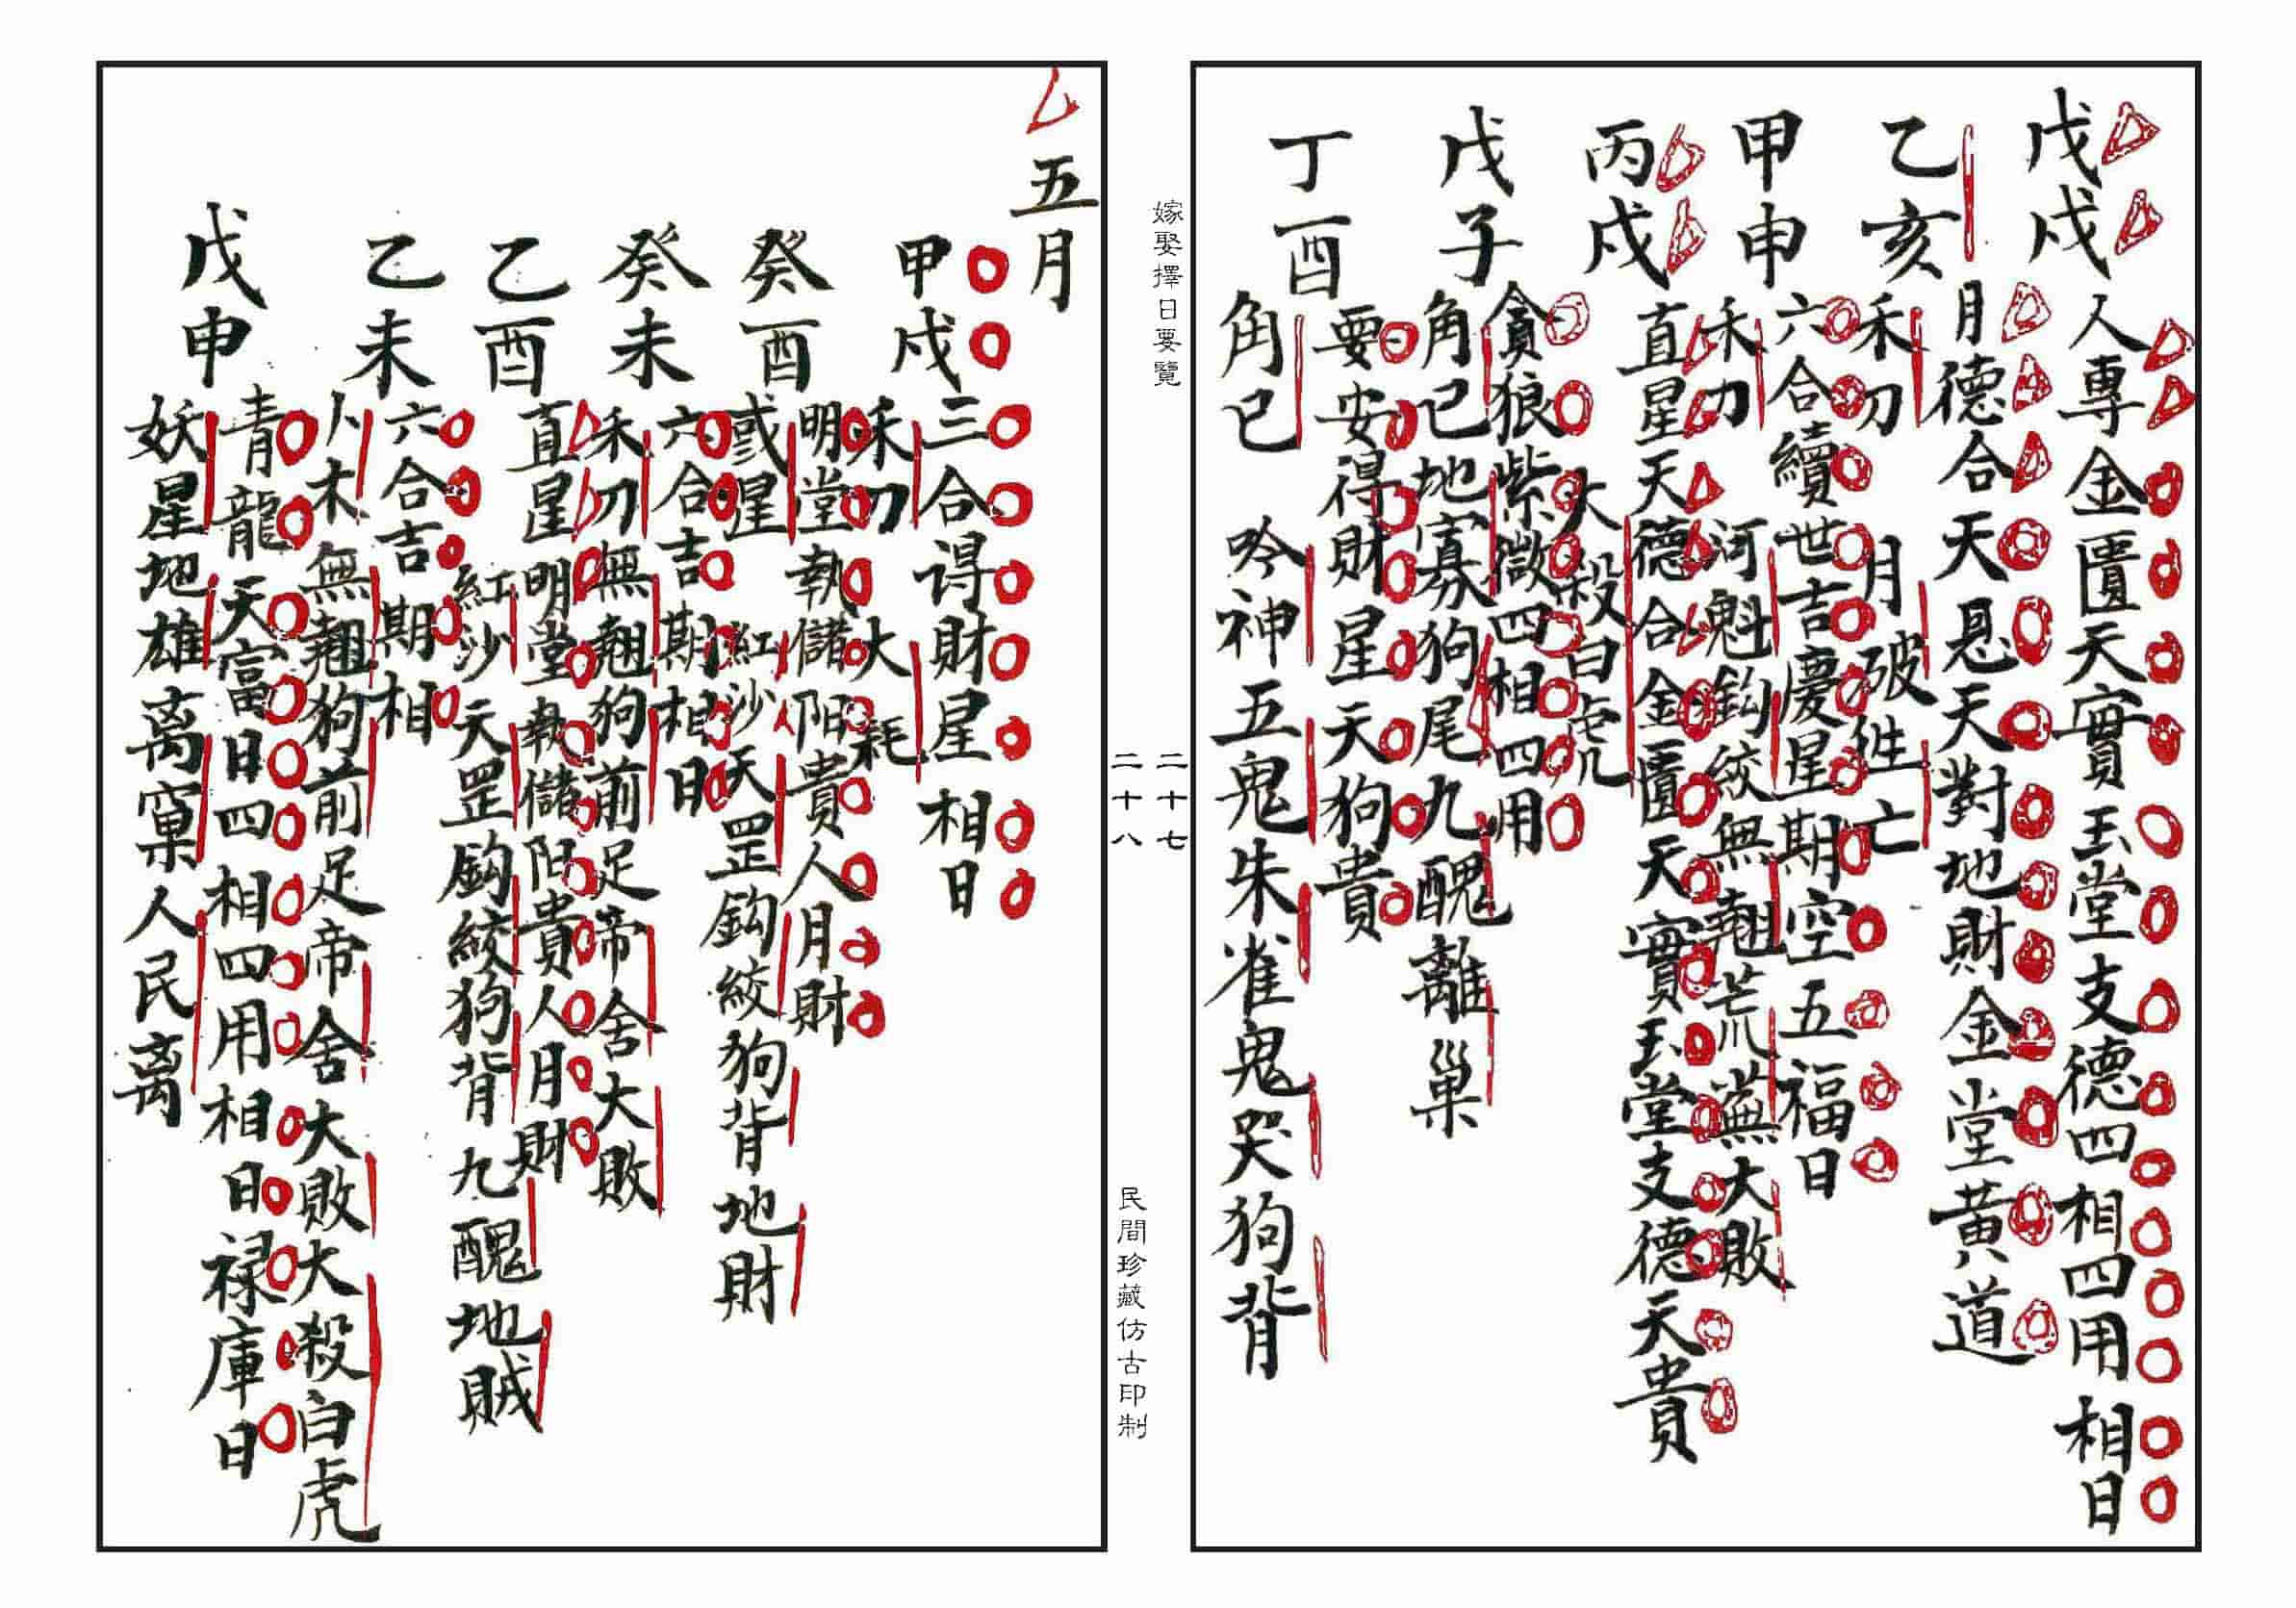 戊戌
人專金匱天寳玉堂支德四相四用相日
月德合天恩天對地財金堂黄道
乙亥
禾刀月破往亡
六合續世吉慶星期空五福日
甲申
禾刀河魁鈎絞無翹荒蕪大敗
丙戌
直星天德合金匱天寳玉堂支德天貴
大殺白虎
貪狼紫微四相四用
戊子
角巳地寡狗尾九醜離巢
要安得財星天狗貴
丁酉
角巳吟神五鬼朱雀鬼哭狗背
嫁娶擇日要覽
二十七
二十八
民間珍藏仿古印制
五月
甲戌
三合得財星相日
禾刀大耗
明堂執儲陽貴人月財
癸酉
彧星紅沙天罡鈎絞狗背地財
六合吉期相日
癸未
禾刀無翹狗前足帝舍大敗
直星明堂執儲陽貴人月財
乙酉
紅沙天罡鈎絞狗背九醜地賊
六合吉期相
乙未
卜木無翹狗前足帝舍大敗大殺白虎
青龍天富日四相四用相日禄庫日
戊申
妖星地雄离窠人民离